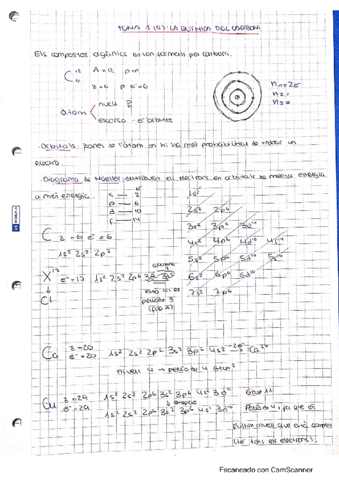 TEMA 1 (O): LA QUÍMICA DEL CARBONI
Els compostos orgànics estan formats per carboni.
C 12 6 A=12 p n
z=6 p e⁻=6
àtom nucli p n
escorça e⁻ òrbites
n₁=2e⁻
n₂=
n₃=
·Orbitals: zones de l'àtom on hi ha més probabilitat de trobar un
electró
·Diagrama de Moeller: distribueix els electrons en orbitals de menys energia
a més energia.
s — 2
p — 6
d — 10
f — 14
1s²
2s² 2p⁶
3s² 3p⁶ 3d¹⁰
4s² 4p⁶ 4d¹⁰ 4f¹⁴
5s² 5p⁶ 5d¹⁰ 5f¹⁴
6s² 6p⁶ 6d¹⁰
7s² 7p⁶
C z=6 e⁻=6
1s² 2s² 2p²
X¹⁷ e⁻=17 1s² 2s² 2p⁶ 3s² 3p⁵
està en el
període 3
Cl
Ca z=20 e⁻=20 1s² 2s² 2p⁶ 3s² 3p⁶ 4s² -2e⁻ → Ca²⁺
nivell 4 → període 4 Grup 2
Cu z=29 e⁻=29 1s² 2s² 2p⁶ 3s² 3p⁶ 4s² 3d⁹ Grup 11
1s² 2s² 2p⁶ 3s² 3p⁶ 4s¹ 3d¹⁰ Període 4, ja que és
l'últim nivell que està complet
Escaneado con CamScanner